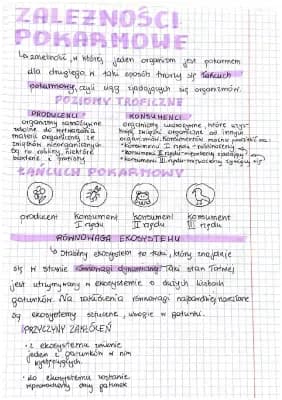 ZALEŻNOŚCI
POKARMOWE
↳ zależność, w której jeden organizm jest pokarmem
dla drugiego, w taki sposób tworzy się łańcuch
pokarmowy, czyli ciąg zjadających się organizmów.
POZIOMY TROFICZNE
PRODUCENCI
organizmy samożywne
zdolne do wytwarzania
materii organicznej ze
związków nieorganicznych
Są to rośliny, niektóre
bakterie i protisty
KONSUMENCI
organizmy cudzożywne, które
związki organiczne od innych
organizmów. Konsumentów można podzielić na:
• konsumenci I rzędu - roślinożercy
• konsumenci II rzędu - mięsożercy zjadający
• konsumenci III rzędu - mięsożercy żywiący się
ŁAŃCUCH POKARMOWY
producent
konsument
I rzędu
konsument
II rzędu
konsument
III rzędu
RÓWNOWAGA EKOSYSTEMU
↳ Stabilny ekosystem to taki, który znajduje
się w stanie równowagi dynamicznej. Taki stan łatwiej
jest utrzymywany w ekosystemie o dużych liczbach
gatunków. Na zakłócenia równowagi najbardziej narażone
są ekosystemy sztuczne, ubogie w gatunki.
PRZYCZYNY ZAKŁÓCEŃ
• z ekosystemu zniknie
jeden z gatunków w nim
występujących
• do ekosystemu zostanie
wprowadzony obcy gatunek